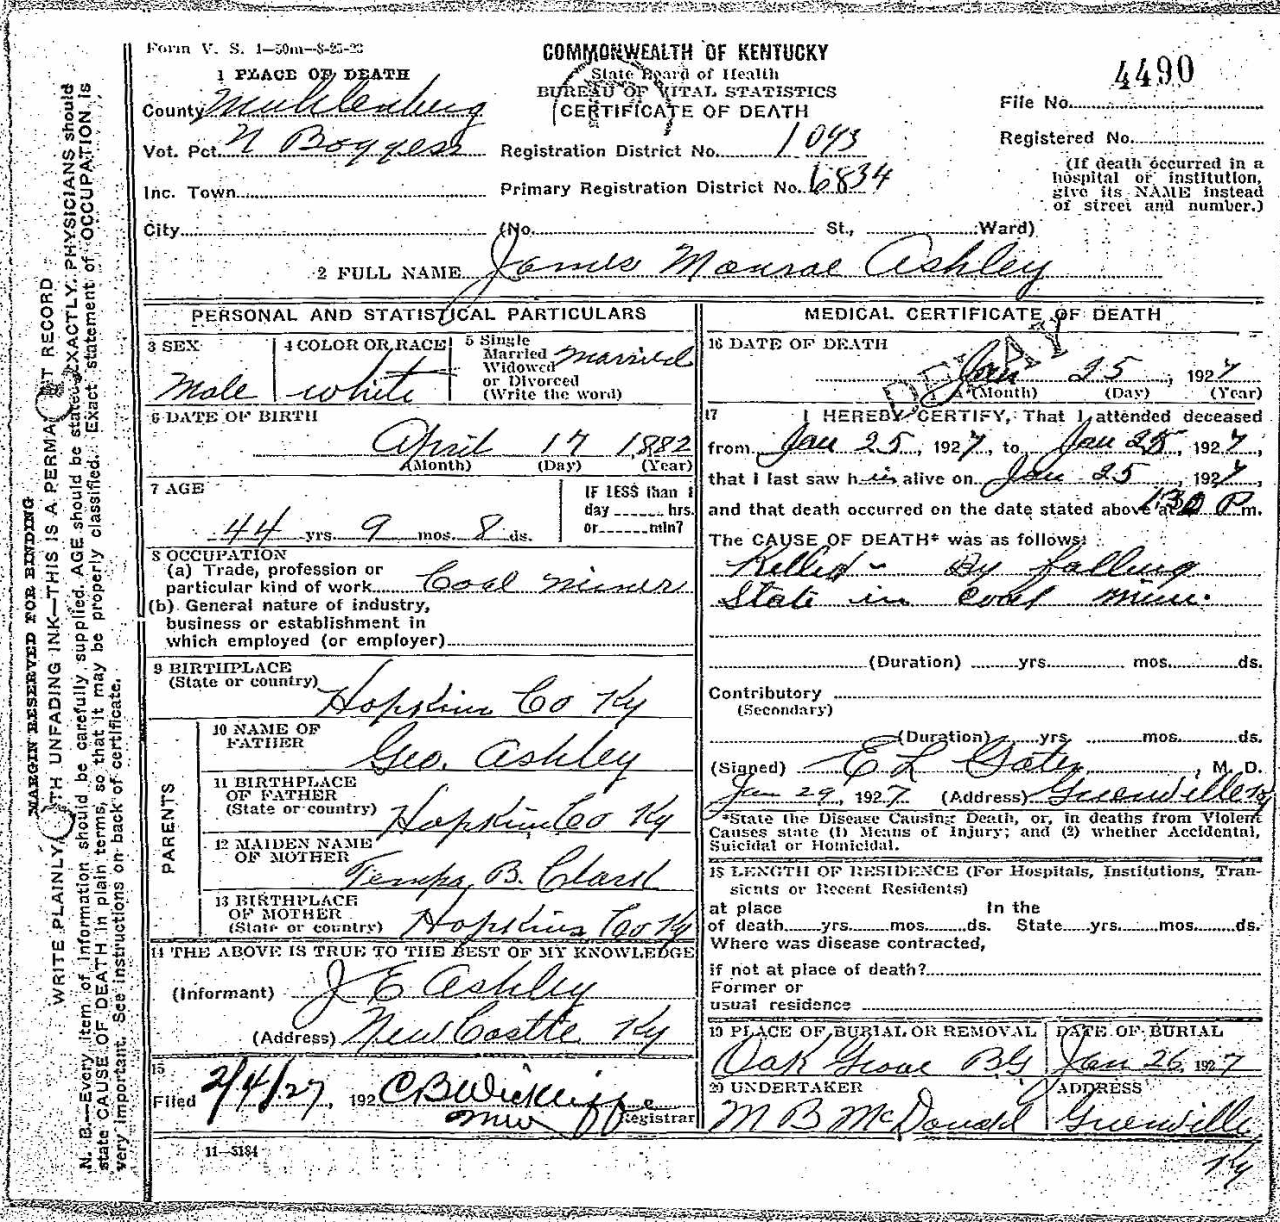 Form V. S. 1—50m—8-25-23
COMMONWEALTH OF KENTUCKY
State Board of Health
BUREAU OF VITAL STATISTICS
CERTIFICATE OF DEATH
4490
File No.
Registered No.
(If death occurred in a hospital or institution, give its NAME instead of street and number.)
1 PLACE OF DEATH
County Muhlenberg
Vot. Pct. N Boggess
Registration District No. 1093
Inc. Town
Primary Registration District No. 6834
City (No. St., Ward)
2 FULL NAME James Monroe Ashley
PERSONAL AND STATISTICAL PARTICULARS
3 SEX Male
4 COLOR OR RACE white
5 Single Married Widowed or Divorced (Write the word) married
6 DATE OF BIRTH
April 17 1882
(Month) (Day) (Year)
7 AGE
44 yrs. 9 mos. 8 ds.
IF LESS than 1 day ____ hrs. or ____ min?
8 OCCUPATION
(a) Trade, profession or particular kind of work Coal miner
(b) General nature of industry, business or establishment in which employed (or employer)
9 BIRTHPLACE
(State or country) Hopkins Co Ky
PARENTS
10 NAME OF FATHER Geo. Ashley
11 BIRTHPLACE OF FATHER (State or country) Hopkins Co Ky
12 MAIDEN NAME OF MOTHER Tempa B. Clark
13 BIRTHPLACE OF MOTHER (State or country) Hopkins Co Ky
14 THE ABOVE IS TRUE TO THE BEST OF MY KNOWLEDGE
(Informant) J E Ashley
(Address) New Castle Ky
15
Filed 2/4/27, 192 C B Wickliffe
Registrar
11—3184
MEDICAL CERTIFICATE OF DEATH
DELAY
16 DATE OF DEATH
Jan 25, 1927
(Month) (Day) (Year)
17 I HEREBY CERTIFY, That I attended deceased
from Jan 25, 1927, to Jan 25, 1927,
that I last saw him alive on Jan 25, 1927,
and that death occurred on the date stated above at 1:30 P m.
The CAUSE OF DEATH* was as follows:
Killed - By falling
Slate in coal mine.
(Duration) yrs. mos. ds.
Contributory
(Secondary)
(Duration) yrs. mos. ds.
(Signed) E L Gates, M. D.
Jan 29, 1927 (Address) Greenville Ky
*State the Disease Causing Death, or, in deaths from Violent Causes state (1) Means of Injury; and (2) whether Accidental, Suicidal or Homicidal.
18 LENGTH OF RESIDENCE (For Hospitals, Institutions, Transients or Recent Residents)
at place of death yrs. mos. ds. In the State yrs. mos. ds.
Where was disease contracted,
if not at place of death?
Former or usual residence
19 PLACE OF BURIAL OR REMOVAL Oak Grove BG
DATE OF BURIAL Jan 26, 1927
20 UNDERTAKER M B McDonald
ADDRESS Greenville Ky
MARGIN RESERVED FOR BINDING
WRITE PLAINLY WITH UNFADING INK—THIS IS A PERMANENT RECORD
N. B.—Every item of information should be carefully supplied. AGE should be stated EXACTLY. PHYSICIANS should
state CAUSE OF DEATH in plain terms, so that it may be properly classified. Exact statement of OCCUPATION is
very important. See instructions on back of certificate.